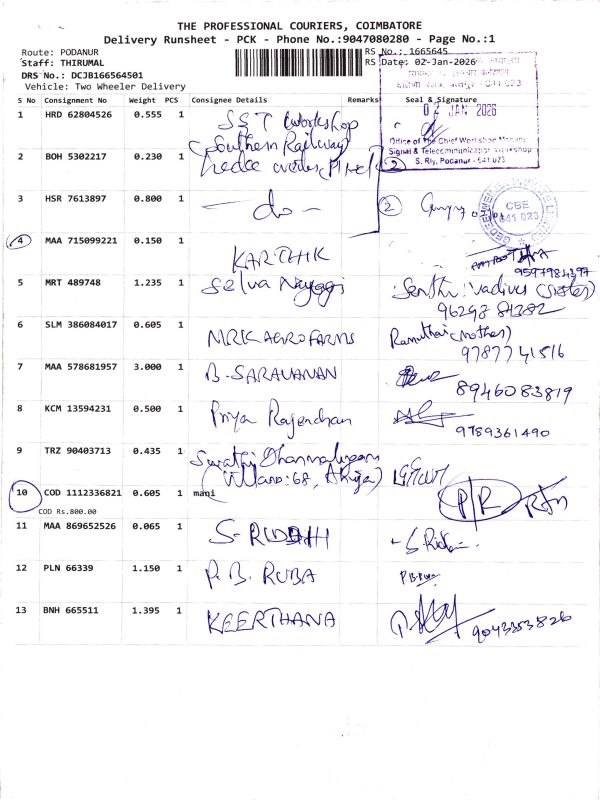 THE PROFESSIONAL COURIERS, COIMBATORE
Delivery Runsheet - PCK - Phone No.:9047080280 - Page No.:1
Route: PODANUR
RS No.: 1665645
Staff: THIRUMAL
RS Date: 02-Jan-2026
DRS No.: DCJB166564501
Vehicle: Two Wheeler Delivery
S No Consignment No Weight PCS Consignee Details Remarks Seal & Signature
JAN 2026
Office of The Chief Workshop Manager
Signal & Telecommunication Workshop
S. Rly, Podanur - 641 023
1 HRD 62804526 0.555 1 SST Workshop
(Southern Railway)
2 BOH 5302217 0.230 1
3 HSR 7613897 0.800 1 - do - 2
CBE
641 023
4 MAA 715099221 0.150 1 KARTHIK
9597984397
5 MRT 489748 1.235 1 Selva Nayagi Senthi Vadivu (sister)
96298 81382
6 SLM 386084017 0.605 1 MRK AGRO FARMS Ramuthai (mother)
9787741516
7 MAA 578681957 3.000 1 B-SARAVANAN
8946083819
8 KCM 13594231 0.500 1 Priya Rajendran
9789361490
9 TRZ 90403713 0.435 1
10 COD 1112336821 0.605 1 mani P/R
COD Rs.800.00
11 MAA 869652526 0.065 1 S-RIDDHI
12 PLN 66339 1.150 1 P. B. RUBA
13 BNH 665511 1.395 1 KEERTHANA
9043353826